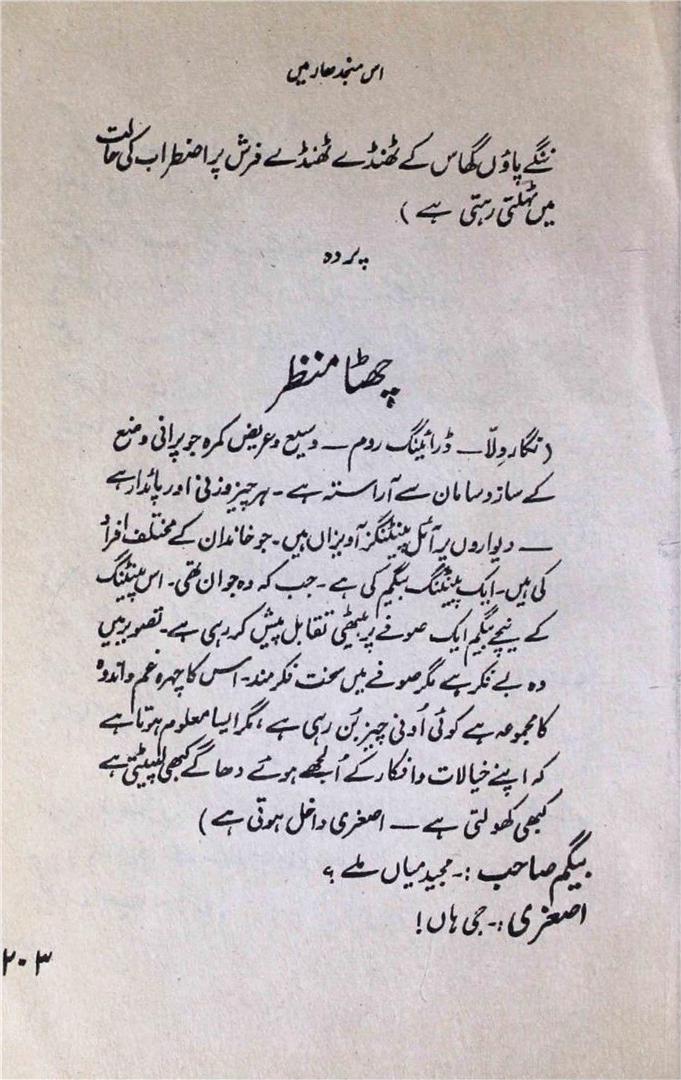 اس منجدھار میں
ننگے پاؤں گھاس کے ٹھنڈے ٹھنڈے فرش پر اضطراب کی حالت
میں ٹہلتی رہتی ہے )
پردہ
چھٹا منظر
( نگار وِلّا ـــ ڈرائینگ روم ـــ وسیع و عریض کمرہ جو پرانی وضع
کے ساز و سامان سے آراستہ ہے ۔ ہر چیز وزنی اور پائدار ہے
ـــ دیواروں پر آئل پینٹنگز آویزاں ہیں ۔ جو خاندان کے مختلف افراد
کی ہیں ۔ ایک پینٹنگ بیگم کی ہے ۔ جب کہ وہ جوان تھی ۔ اس پینٹنگ
کے نیچے بیگم ایک صوفے پر بیٹھی تقابل پیش کر رہی ہے ۔ تصویر میں
وہ بے فکر ہے مگر صوفے میں سخت فکر مند ۔ اس کا چہرہ غم و اندوہ
کا مجموعہ ہے کوئی اُونی چیز بُن رہی ہے ، مگر ایسا معلوم ہوتا ہے
کہ اپنے خیالات و افکار کے اُلجھے ہوئے دھاگے کبھی لپیٹتی ہے
کبھی کھولتی ہے ـــ اصغری داخل ہوتی ہے )
بیگم صاحب :۔ مجید میاں ملے ؟
اصغری :۔ جی ہاں !
۲۰۳